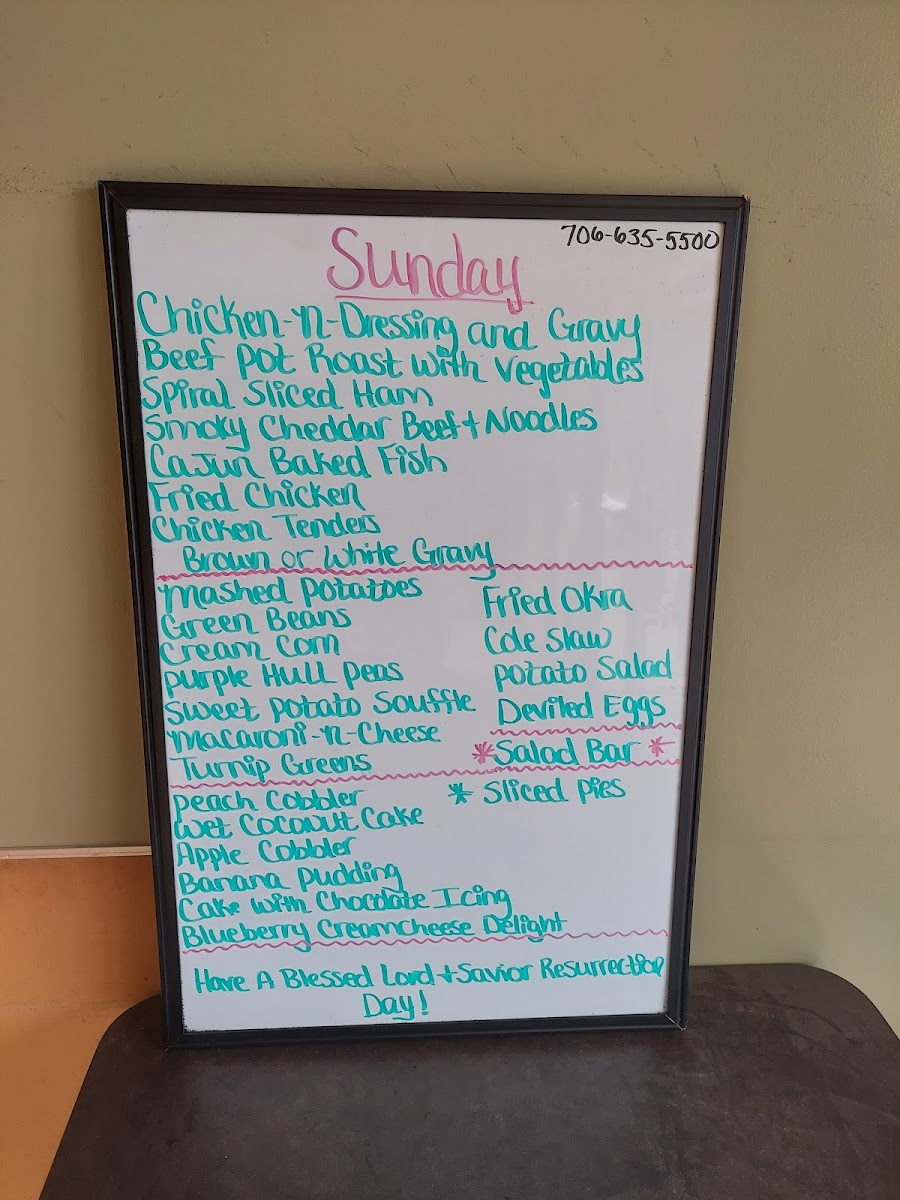 706-635-5500
Sunday
Chicken-n-Dressing and Gravy
Beef Pot Roast with Vegetables
Spiral Sliced Ham
Smoky Cheddar Beef + Noodles
Cajun Baked Fish
Fried Chicken
Chicken Tenders
Brown or White Gravy
Mashed Potatoes
Green Beans
Cream Corn
Purple Hull Peas
Sweet Potato Souffle
Macaroni-n-Cheese
Turnip Greens
Fried Okra
Cole Slaw
Potato Salad
Deviled Eggs
*Salad Bar*
* Sliced Pies
Peach Cobbler
Wet Coconut Cake
Apple Cobbler
Banana Pudding
Cake with Chocolate Icing
Blueberry Creamcheese Delight
Have A Blessed Lord + Savior Resurrection
Day!